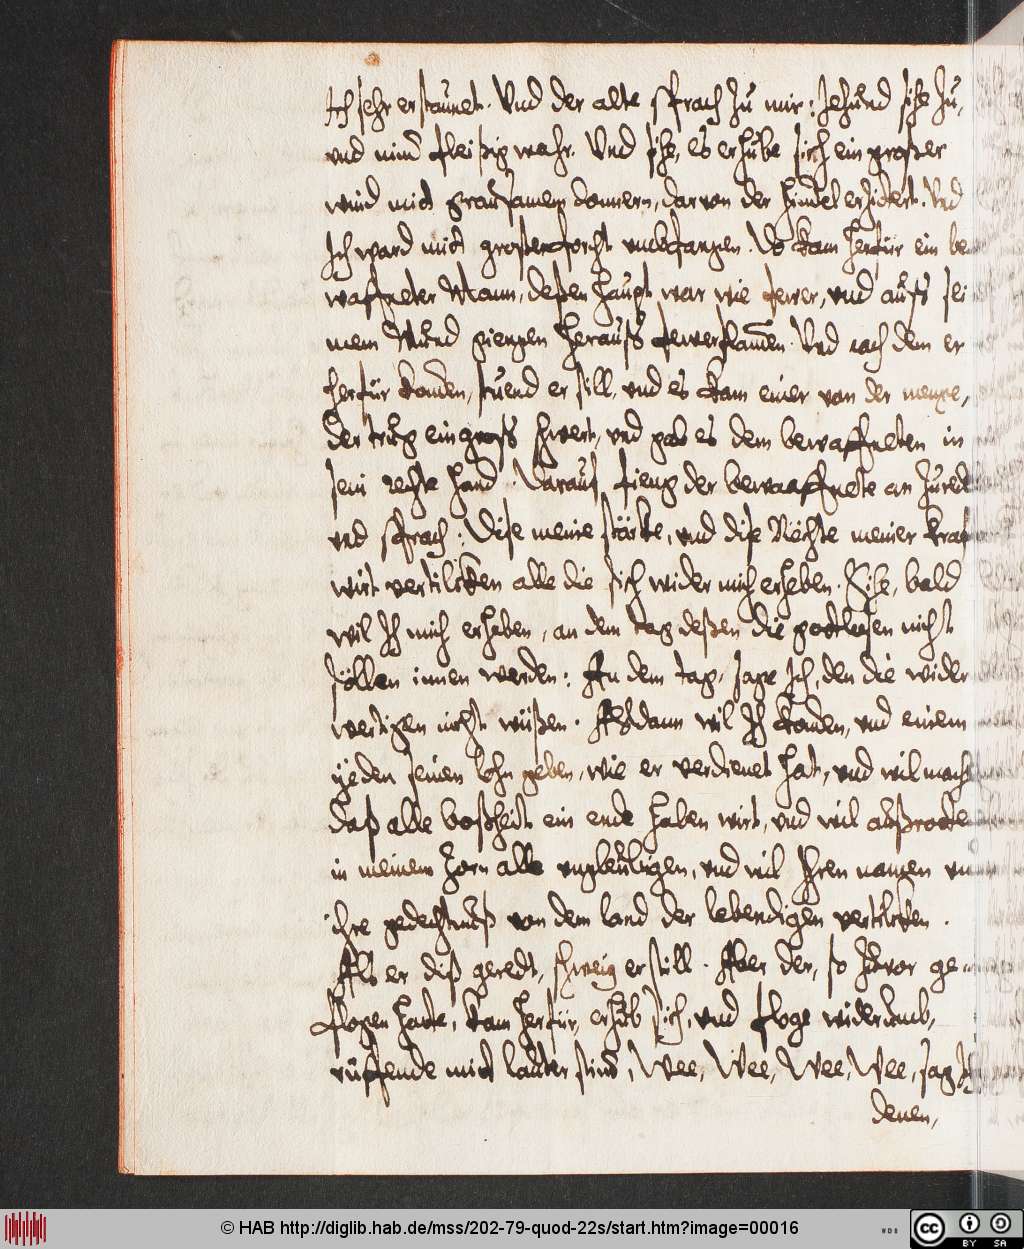 Ich sehr erstaunet. Vnd der alte sprach zu mir: Jezund sihe zu,
vnd nim̄ fleißig wahr. Vnd sihe, es erhube sich ein großer
wind mit grausamen donnern, darvon der himel erzitert. Vnd
Ich ward mit großer forcht vmbfangen. Do kam herfür ein be
waffneter Mann, deßen haupt war wie fewer, vnd auß sei
nem Mund giengen herauß fewerflam̄en. Vnd nach dem er
herfür kom̄en, stuend er still, vnd es kam einer von der menge,
der trug ein groß schwert, vnd gab es dem bewaffneten in
sein rechte hand. Darauf fieng der bewaaffnete an zu red
vnd sprach: Dise meine störke, vnd dise Rechte meiner kraf
wirt vertilcken alle die sich wider mich erheben. Sihe, bald
wil Ich mich erheben, an dem tag deßen die gottlosen nicht
söllen innen werden: An dem tag, sage Ich, den die wider
wertigen nicht wüßen. Alsdann wil Ich kom̄en, vnd einem
yeden seinen lohn geben, wie er verdienet hat, vnd wil mach
daß alle boßheit ein ende haben wirt, vnd wil außrotte
in meinem zorn alle vngleubigen, vnd wil Ihren namen vn
ihre gedechtnuß von dem land der lebendigen vertilcken.
Als er diß geredt, schweig er still. Aber der, so zuvor ge-
flogen hatte, kam herfür, erhub sich, vnd floge widerumb,
rüffende mit lauter stim̄, Wee, Wee, Wee, Wee, sag Ich
denen,
© HAB http://diglib.hab.de/mss/202-79-quod-22s/start.htm?image=00016
WDB
cc
BY SA